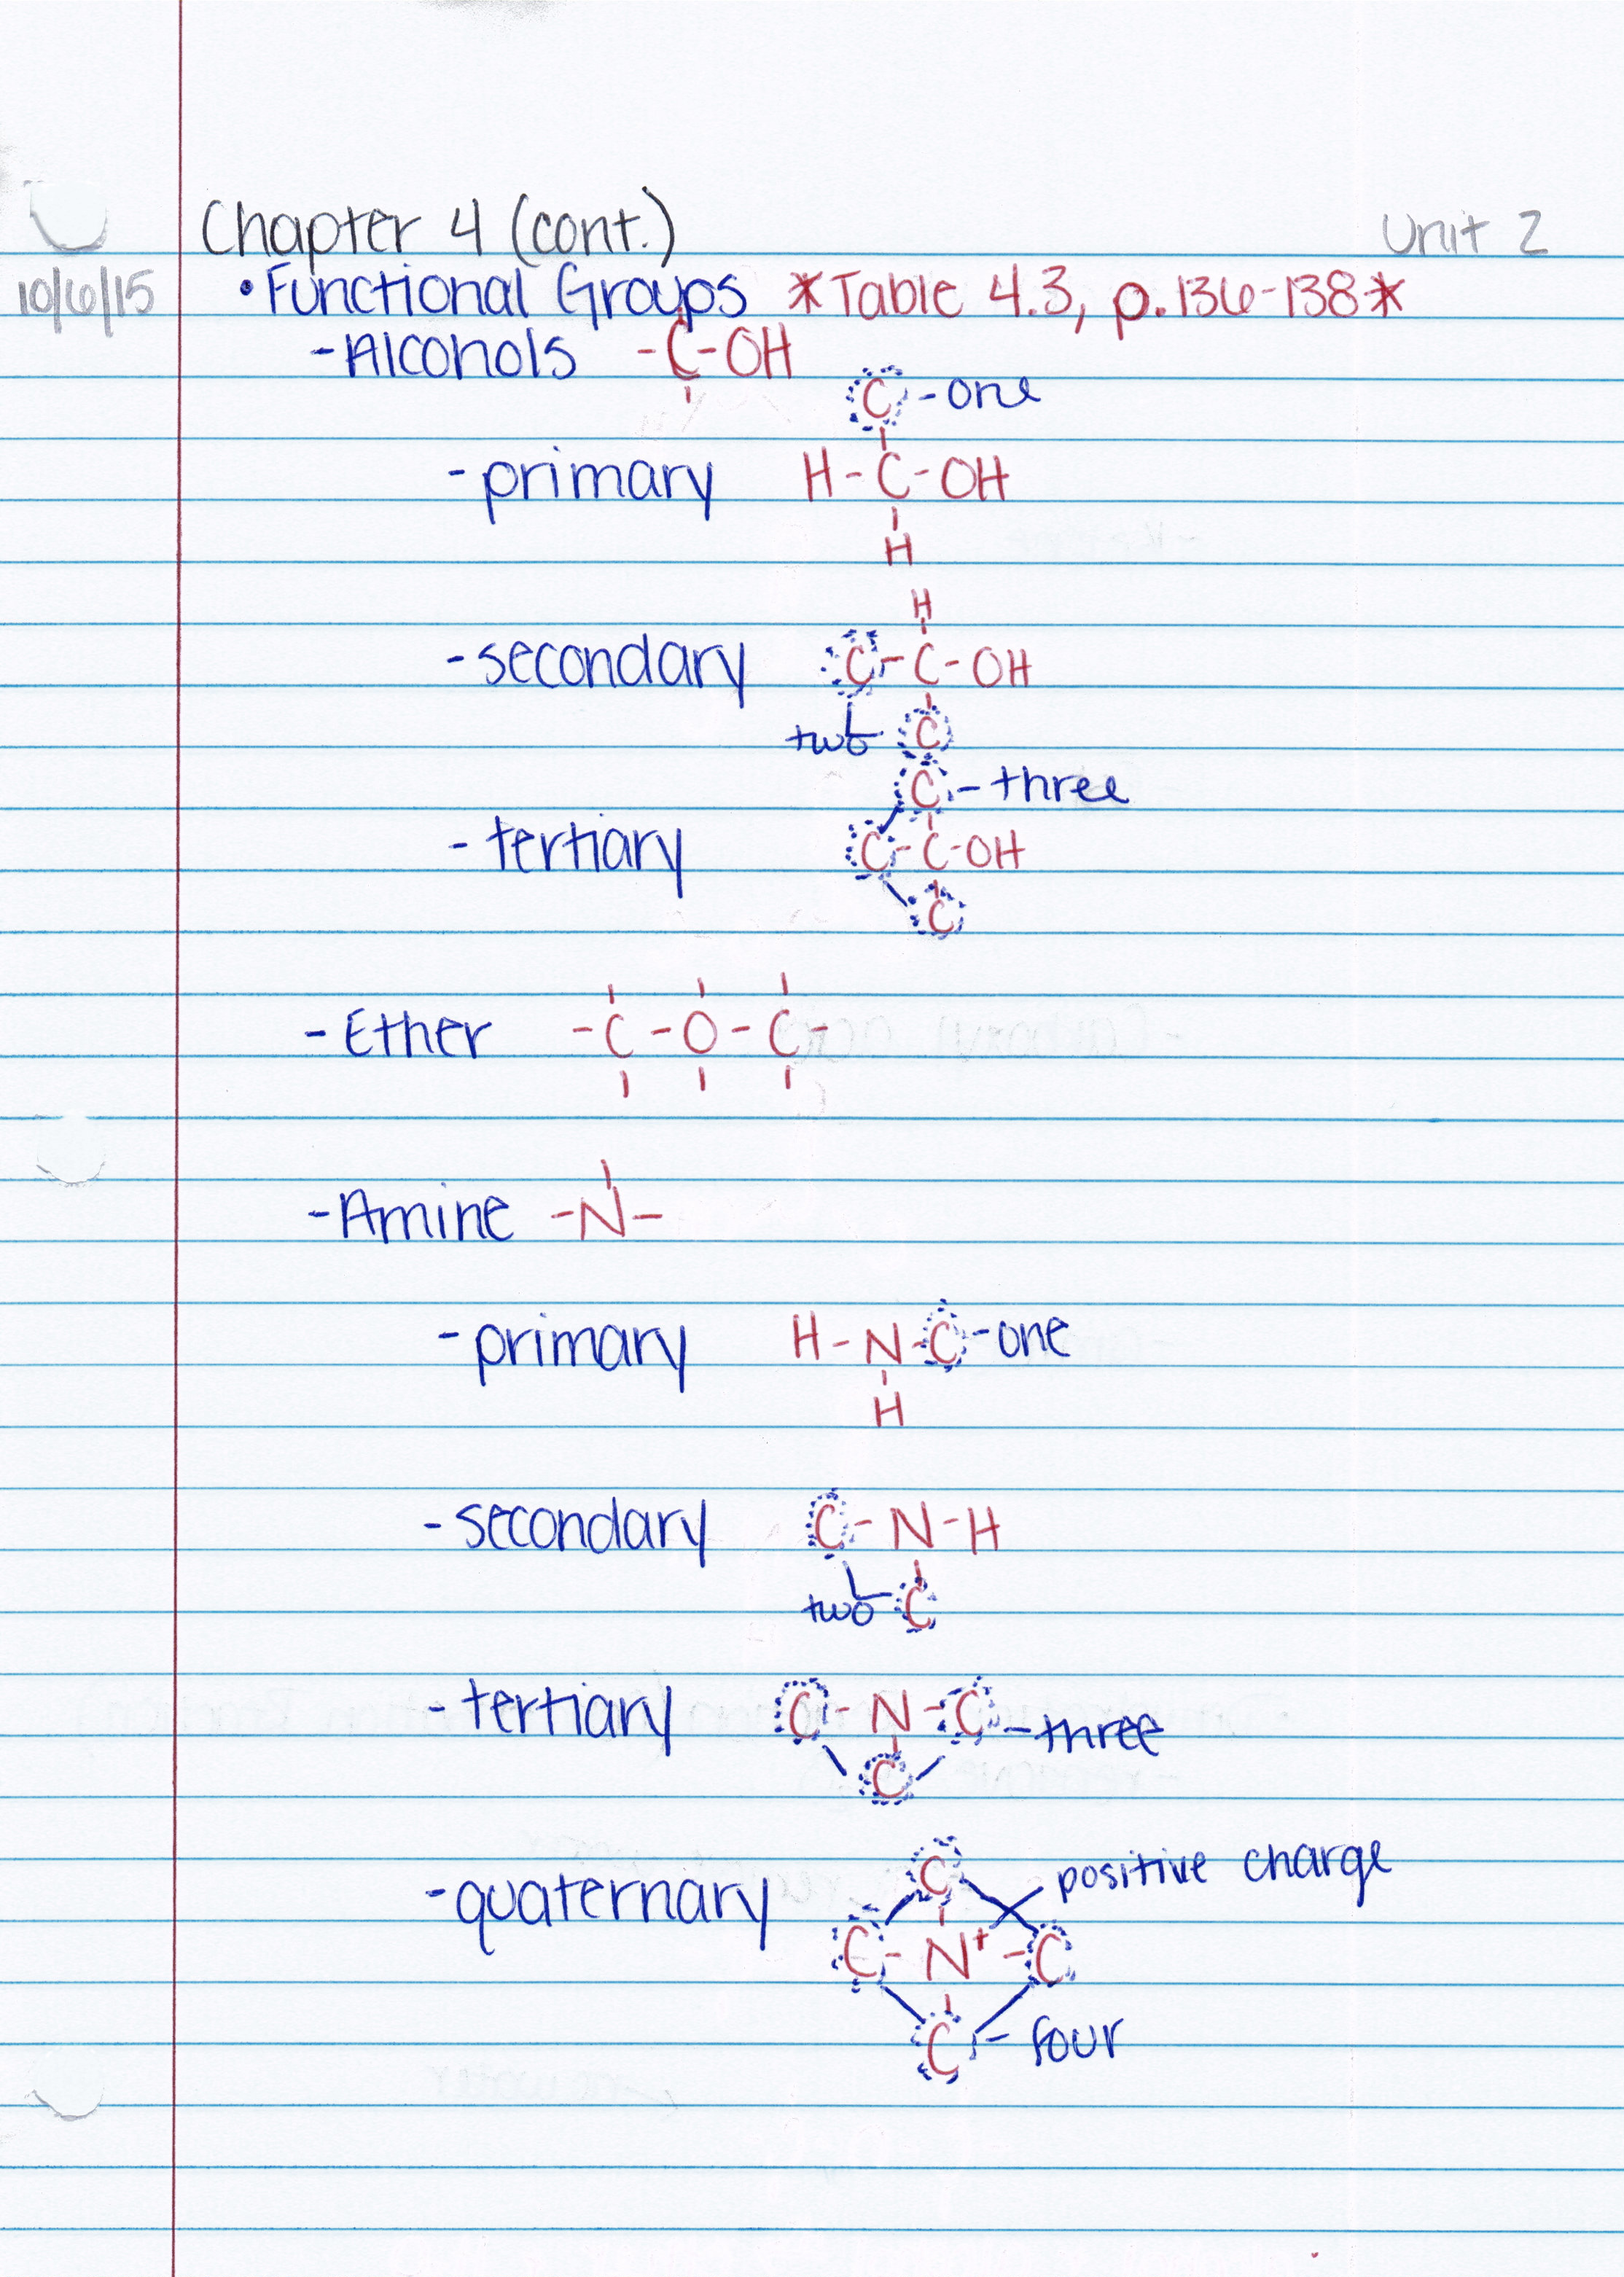 Chapter 4 (cont.) Unit 2
10/6/15 • Functional Groups *Table 4.3, p.136-138*
- Alcohols -C-OH
C - one
- primary H-C-OH
H
H
- secondary C-C-OH
two C
C - three
- tertiary C-C-OH
C
- Ether -C-O-C-
- Amine -N-
- primary H-N-C - one
H
- secondary C-N-H
two C
- tertiary C-N-C - three
C
C positive charge
- quaternary C-N⁺-C
C - four